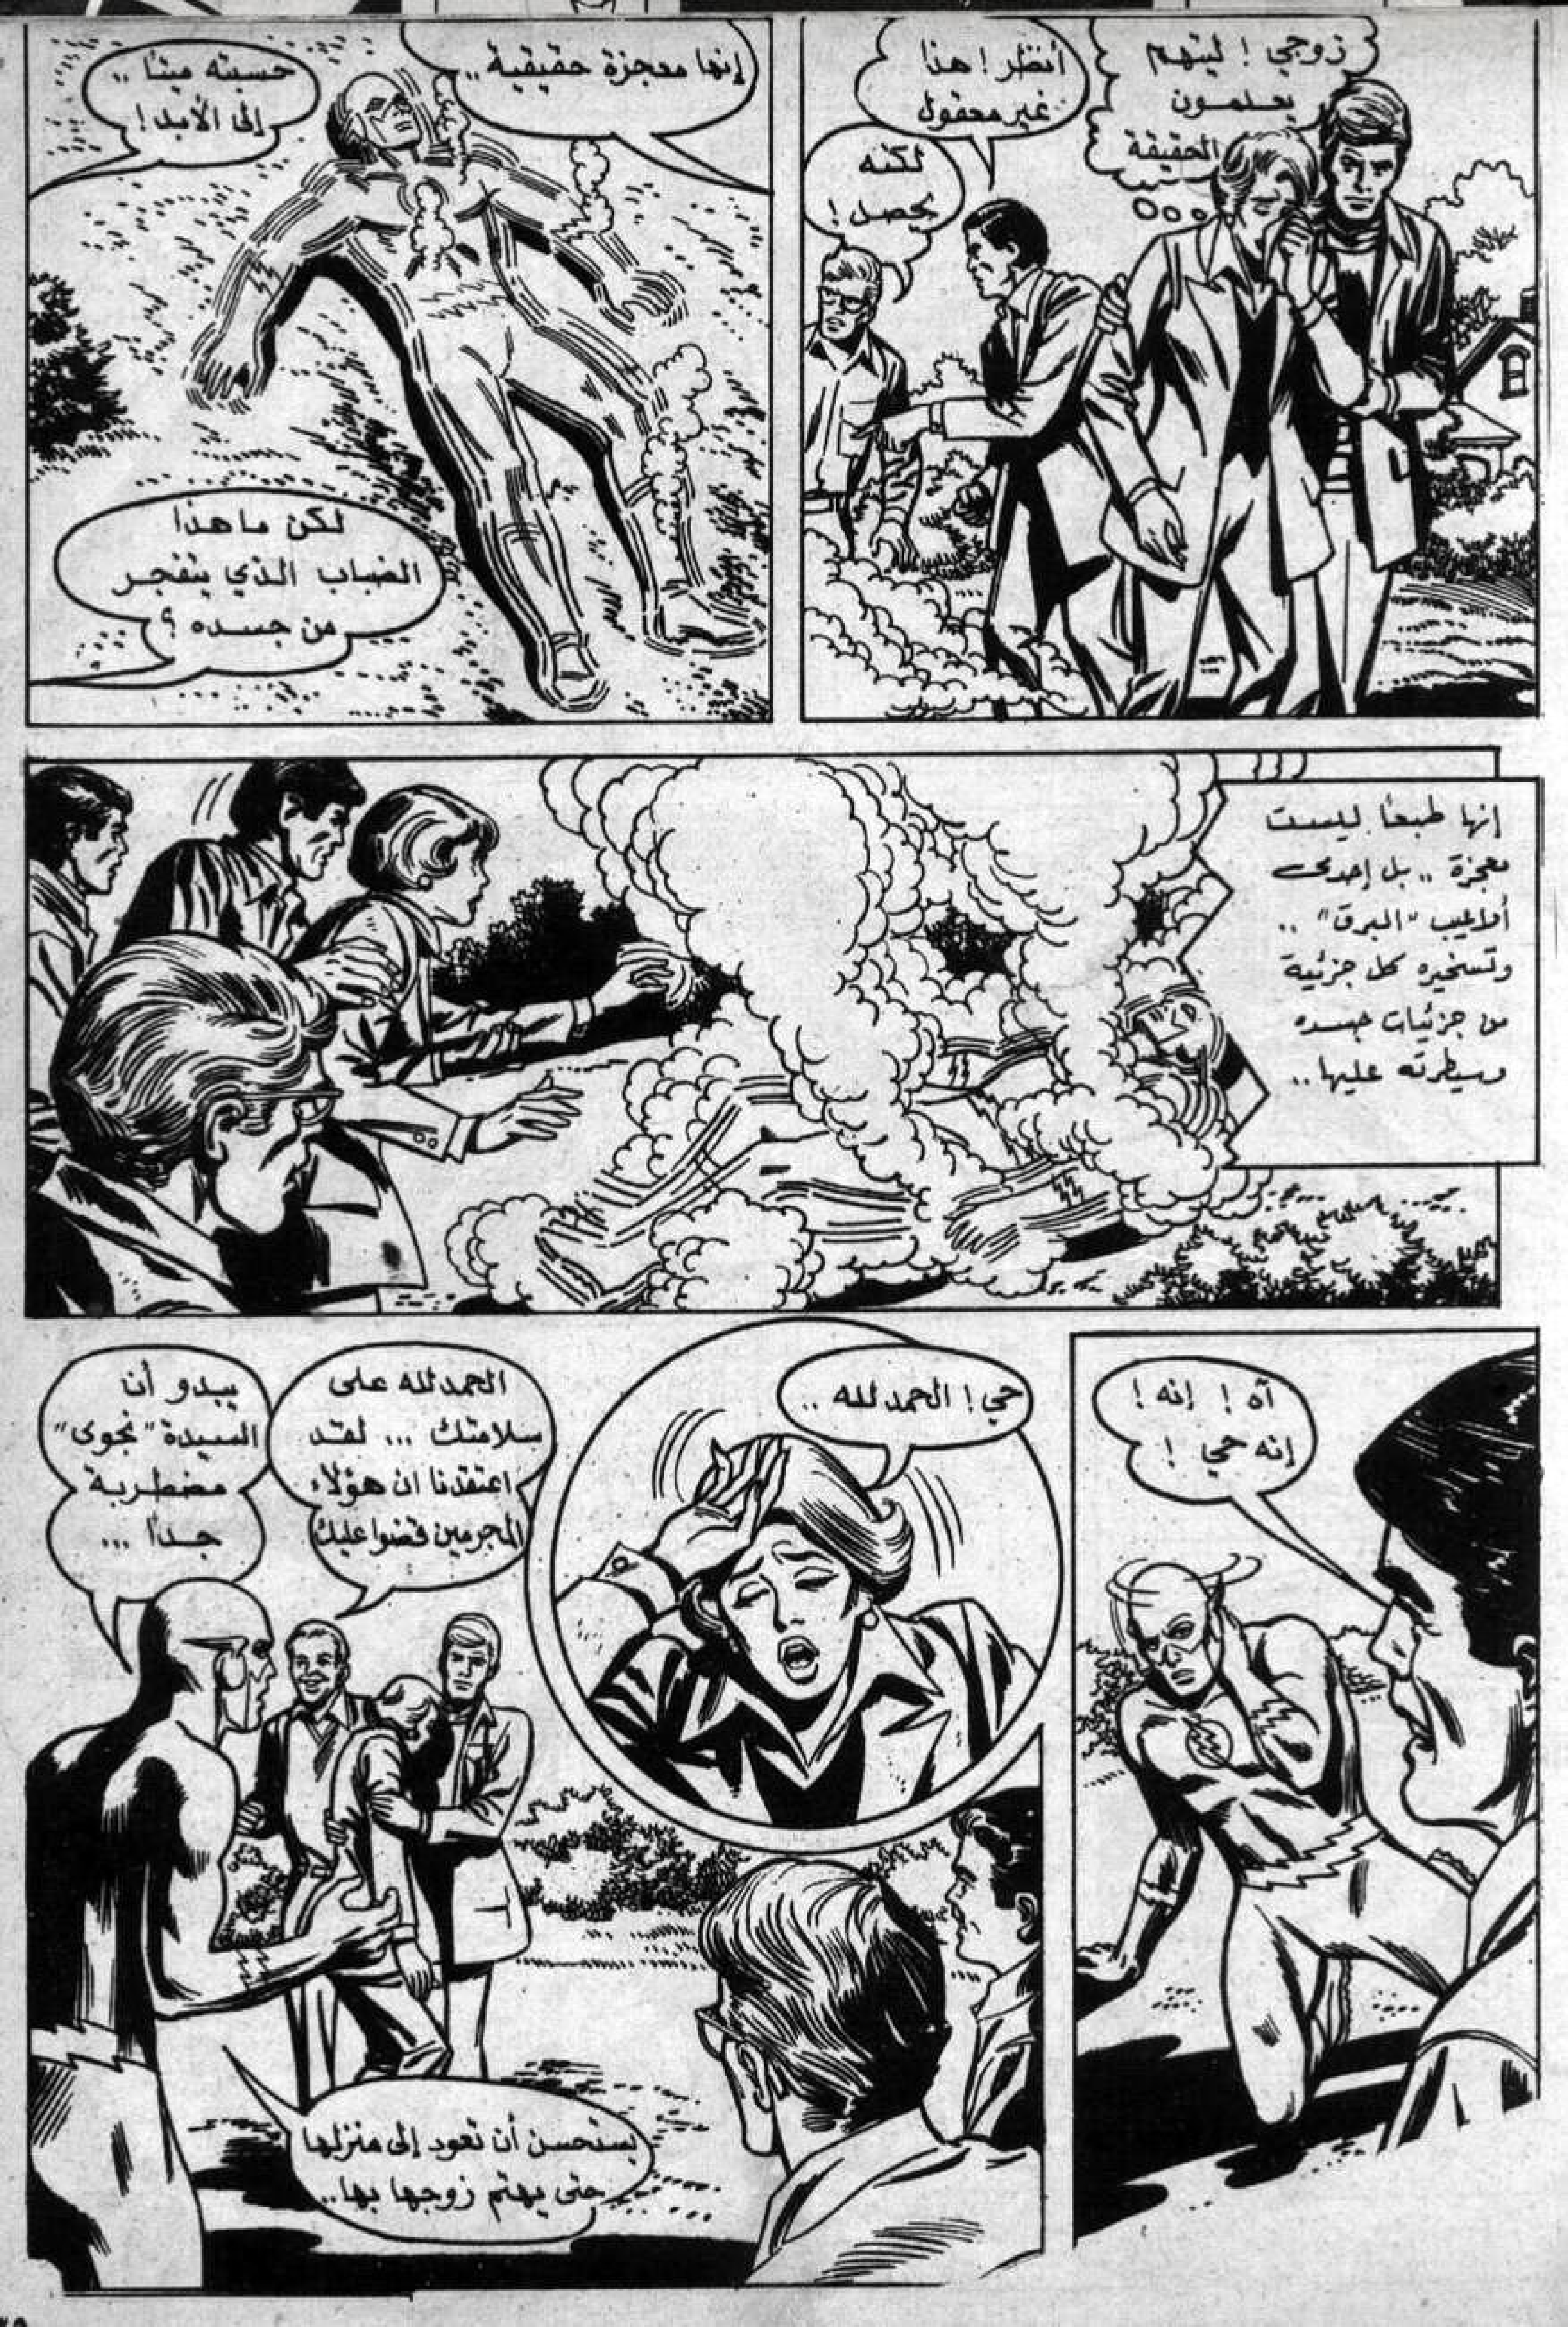 زوجي ! ليتهم
يعلمون
الحقيقة
أنظر ! هذا
غير معقول
لكنه
يحصل !
إنها معجزة حقيقية ..
حسبته ميتا ..
إلى الأبد !
لكن ما هذا
الضباب الذي ينفجر
من جسده ؟
إنها طبعا ليست
معجزة .. بل إحدى
أفاعيل "البرق" ..
وتسخيره كل جزئية
من جزئيات جسده
وسيطرته عليها ..
آه ! إنه !
إنه حي !
حي ! الحمد لله ..
الحمد لله على
سلامتك ... لقد
اعتقدنا ان هؤلاء
المجرمين قضوا عليك
يبدو أن
السيدة "نجوى"
مضطربة
جدا ...
يستحسن أن تعود إلى منزلها
حتى يهتم زوجها بها..